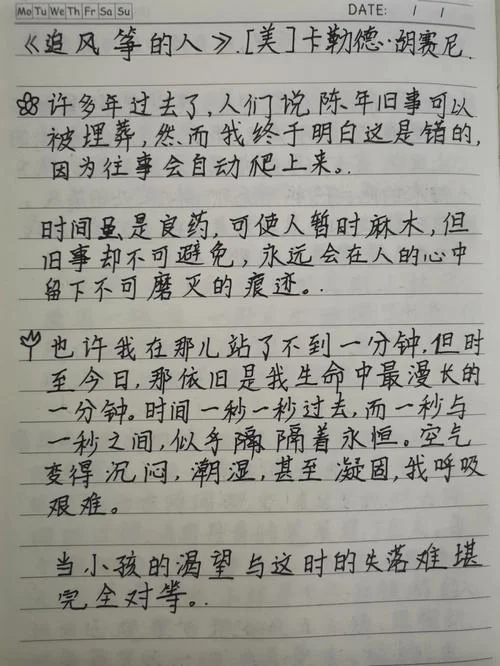 Mo Tu We Th Fr Sa Su
DATE: / /
《追风筝的人》.[美]卡勒德·胡赛尼.
许多年过去了,人们说陈年旧事可以
被埋葬,然而我终于明白这是错的,
因为往事会自动爬上来。.
时间虽是良药,可使人暂时麻木,但
旧事却不可避免,永远会在人的心中
留下不可磨灭的痕迹。.
也许我在那儿站了不到一分钟,但时
至今日,那依旧是我生命中最漫长的
一分钟。时间一秒一秒过去,而一秒与
一秒之间,似乎隔隔着永恒。空气
变得沉闷,潮湿,甚至凝固,我呼吸
艰难。
当小孩的渴望与这时的失落难堪
完全对等。.